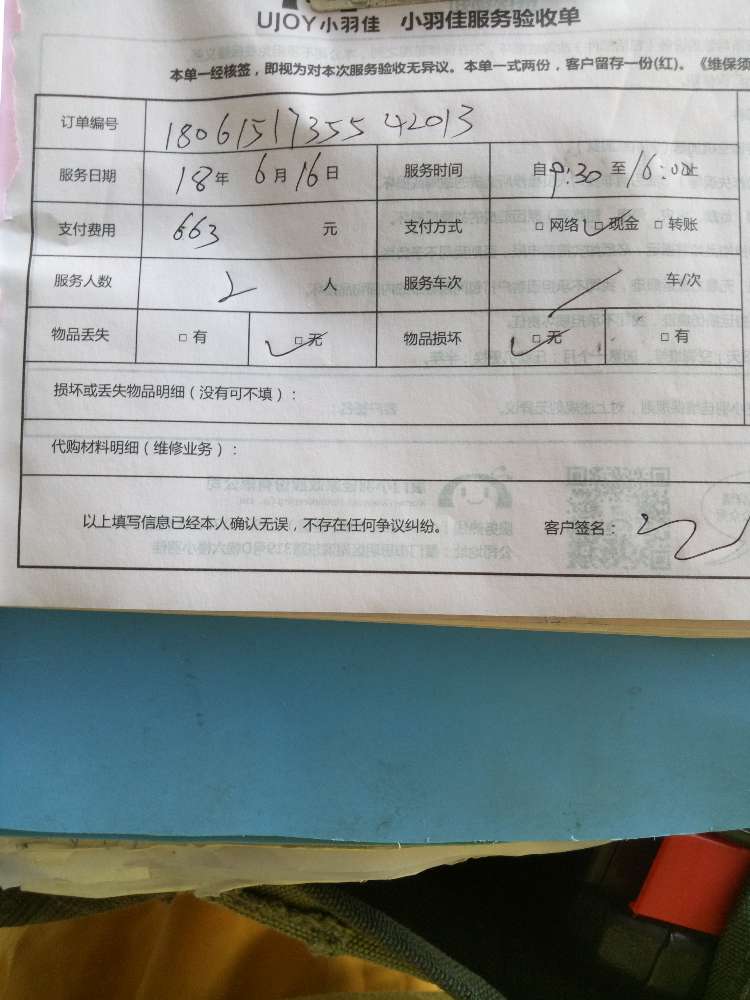 UJOY小羽佳 小羽佳服务验收单
本单一经核签，即视为对本次服务验收无异议。本单一式两份，客户留存一份(红)。《维保须
订单编号 1806151735542013
服务日期 18年 6月16日 服务时间 自9:30至16:00止
支付费用 663 元 支付方式 □网络 ☑现金 □转账
服务人数 2 人 服务车次 / 车/次
物品丢失 □有 ☑无 物品损坏 ☑无 □有
损坏或丢失物品明细（没有可不填）：
代购材料明细（维修业务）：
以上填写信息已经本人确认无误，不存在任何争议纠纷。 客户签名：